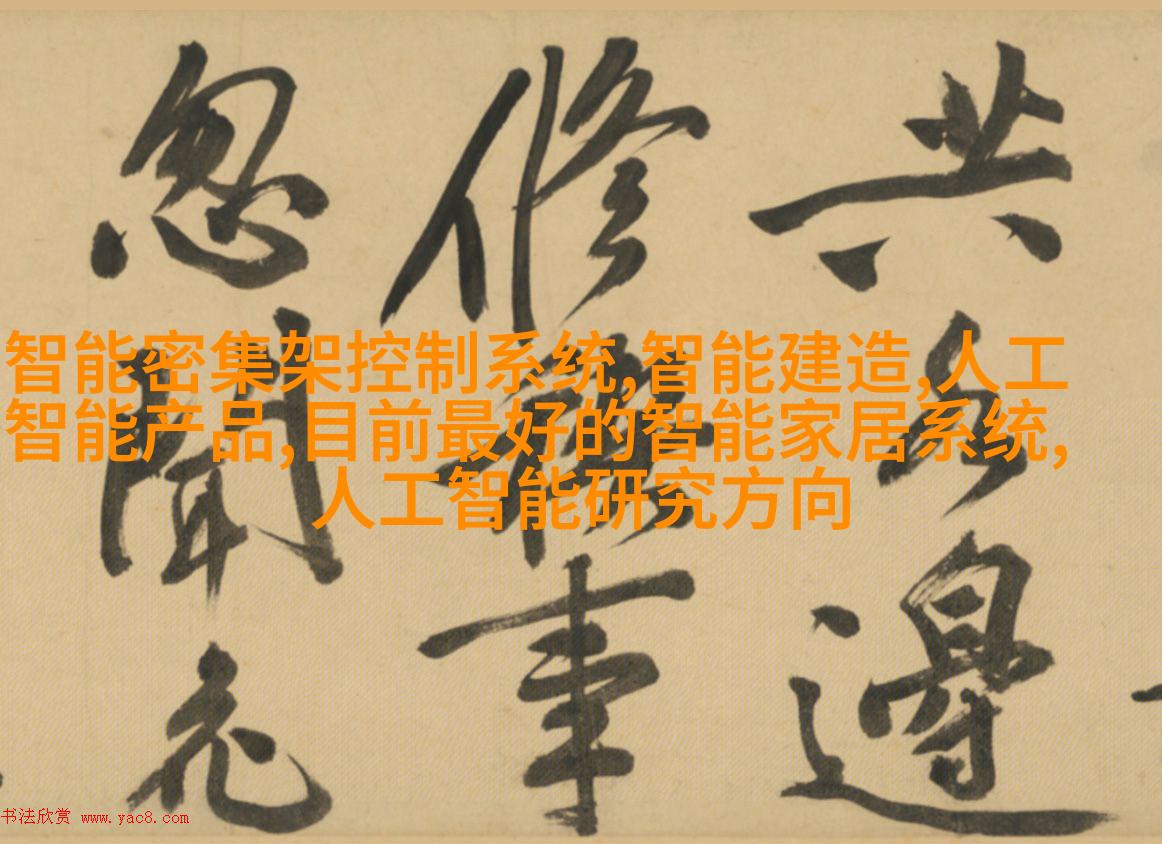 共邊
修事
忽聞
智能密集架控制系统,智能建造,人工
智能产品,目前最好的智能家居系统,
人工智能研究方向
书法欣赏 www.yac8.com